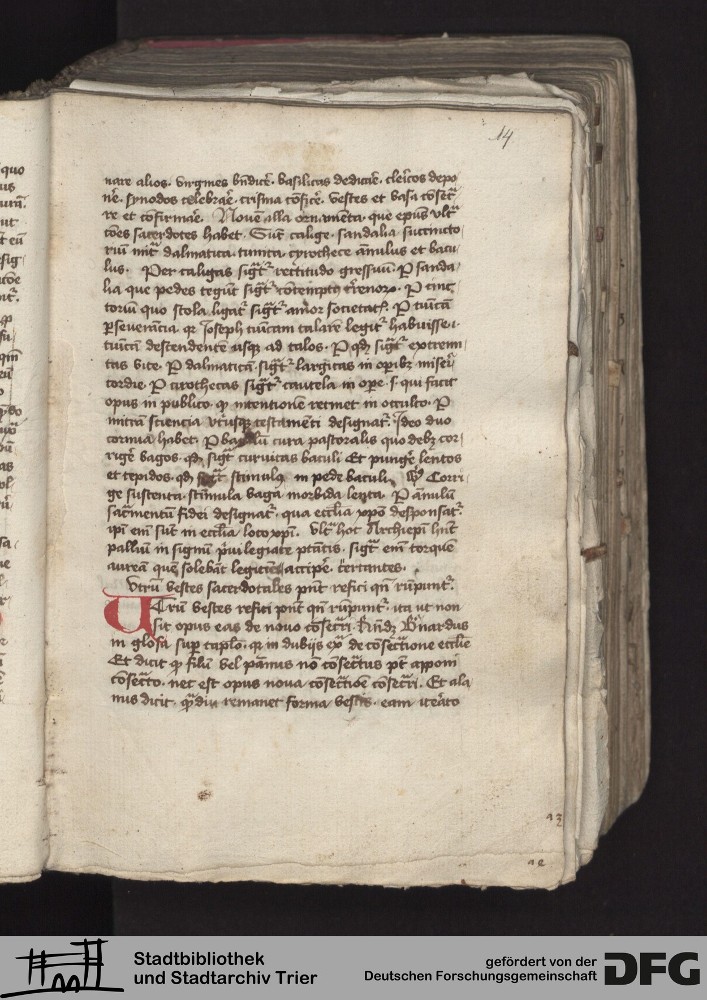 14
nare alios. virgines bn̄dicē. basilicas dedicāe. clericos depo
nē. synodos celebrāe. crisma cōficē. vestes et vasa cōsecra
re et cōfirmāe. Nouē illa ornamēta. que epūs vltra
cōes sacerdotes habet. Sūt calige. sandalia succincto
riū mitra dalmatica. tunica. cyrothece anulus et bacu
lus. Per caligas sigt̄r rectitudo gressuū. P sanda
lia que pedes tegūt sigt̄r cōtemptus terrenorū. P cinc
toriū quo stola ligat̄r sigt̄r amor societatis. P tunicā
perseuerācia. qr Ioseph tunicam talarē legit̄r habuisse. i.
tunicā descendentē usque ad talos. P qd sigt̄r extremi
tas vite. P dalmaticā sigt̄r largitas in operibus miseri
cordie. P cirothecas sigt̄r cautela in ope. s. qui facit
opus in publico. qp intentionē retinet in occulto. P
mitrā sciencia vtriusque testamēti designat̄r. Ideo duo
cornua habet. P baculū cura pastoralis quo debet cor
rigē vagos. qd sigt̄ curuitas baculi Et pungē lentos
et tepidos. qd sigt̄ stimulus in pede baculi. Corri
ge sustenta. stimula vaga morbida lenta. P anulū
sacramentū fidei designat̄r. qua ecclīa xpō desponsat̄r.
ipī em̄ sūt in ecclīa loco xpī. Vlt̄ hoc Archiepī hn̄t
palliū in signū priuilegiate ptātis. sigt̄ em̄ torquē
aureā quē solebāt legitime accipē. certantes.
Vtrū vestes sacerdotales pn̄t refici qn̄ rūpunt̄r.
Utrū vestes refici pn̄t qn̄ rūpunt̄r. ita ut non
sit opus eas de nouo cōsecrari. Rn̄det Bernardus
in glosa super caplo. qr in dubijs exa de cōsecratione ecclīe
Et dicit qp filū vel pannus nō cōsecratus pt apponi
cōsecrato. nec est opus noua cōsecratiōe cōsecrari. Et ala
nus dicit. qp̄diu remanet forma vestis. eam iterato
Stadtbibliothek
und Stadtarchiv Trier
gefördert von der
Deutschen Forschungsgemeinschaft
DFG